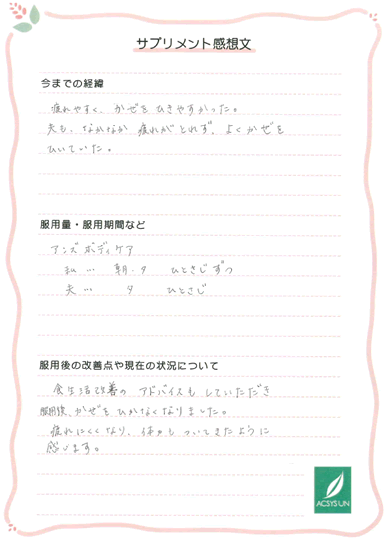 サプリメント感想文
今までの経緯
疲れやすく、かぜをひきやすかった。
夫も、なかなか疲れがとれず、よくかぜを
ひいていた。
服用量・服用期間など
アンズボディケア
私 … 朝・夕 ひとさじずつ
夫 … 夕 ひとさじ
服用後の改善点や現在の状況について
食生活改善のアドバイスもしていただき
服用後、かぜをひかなくなりました。
疲れにくくなり、体力もついてきたように
感じます。
ACSYSUN